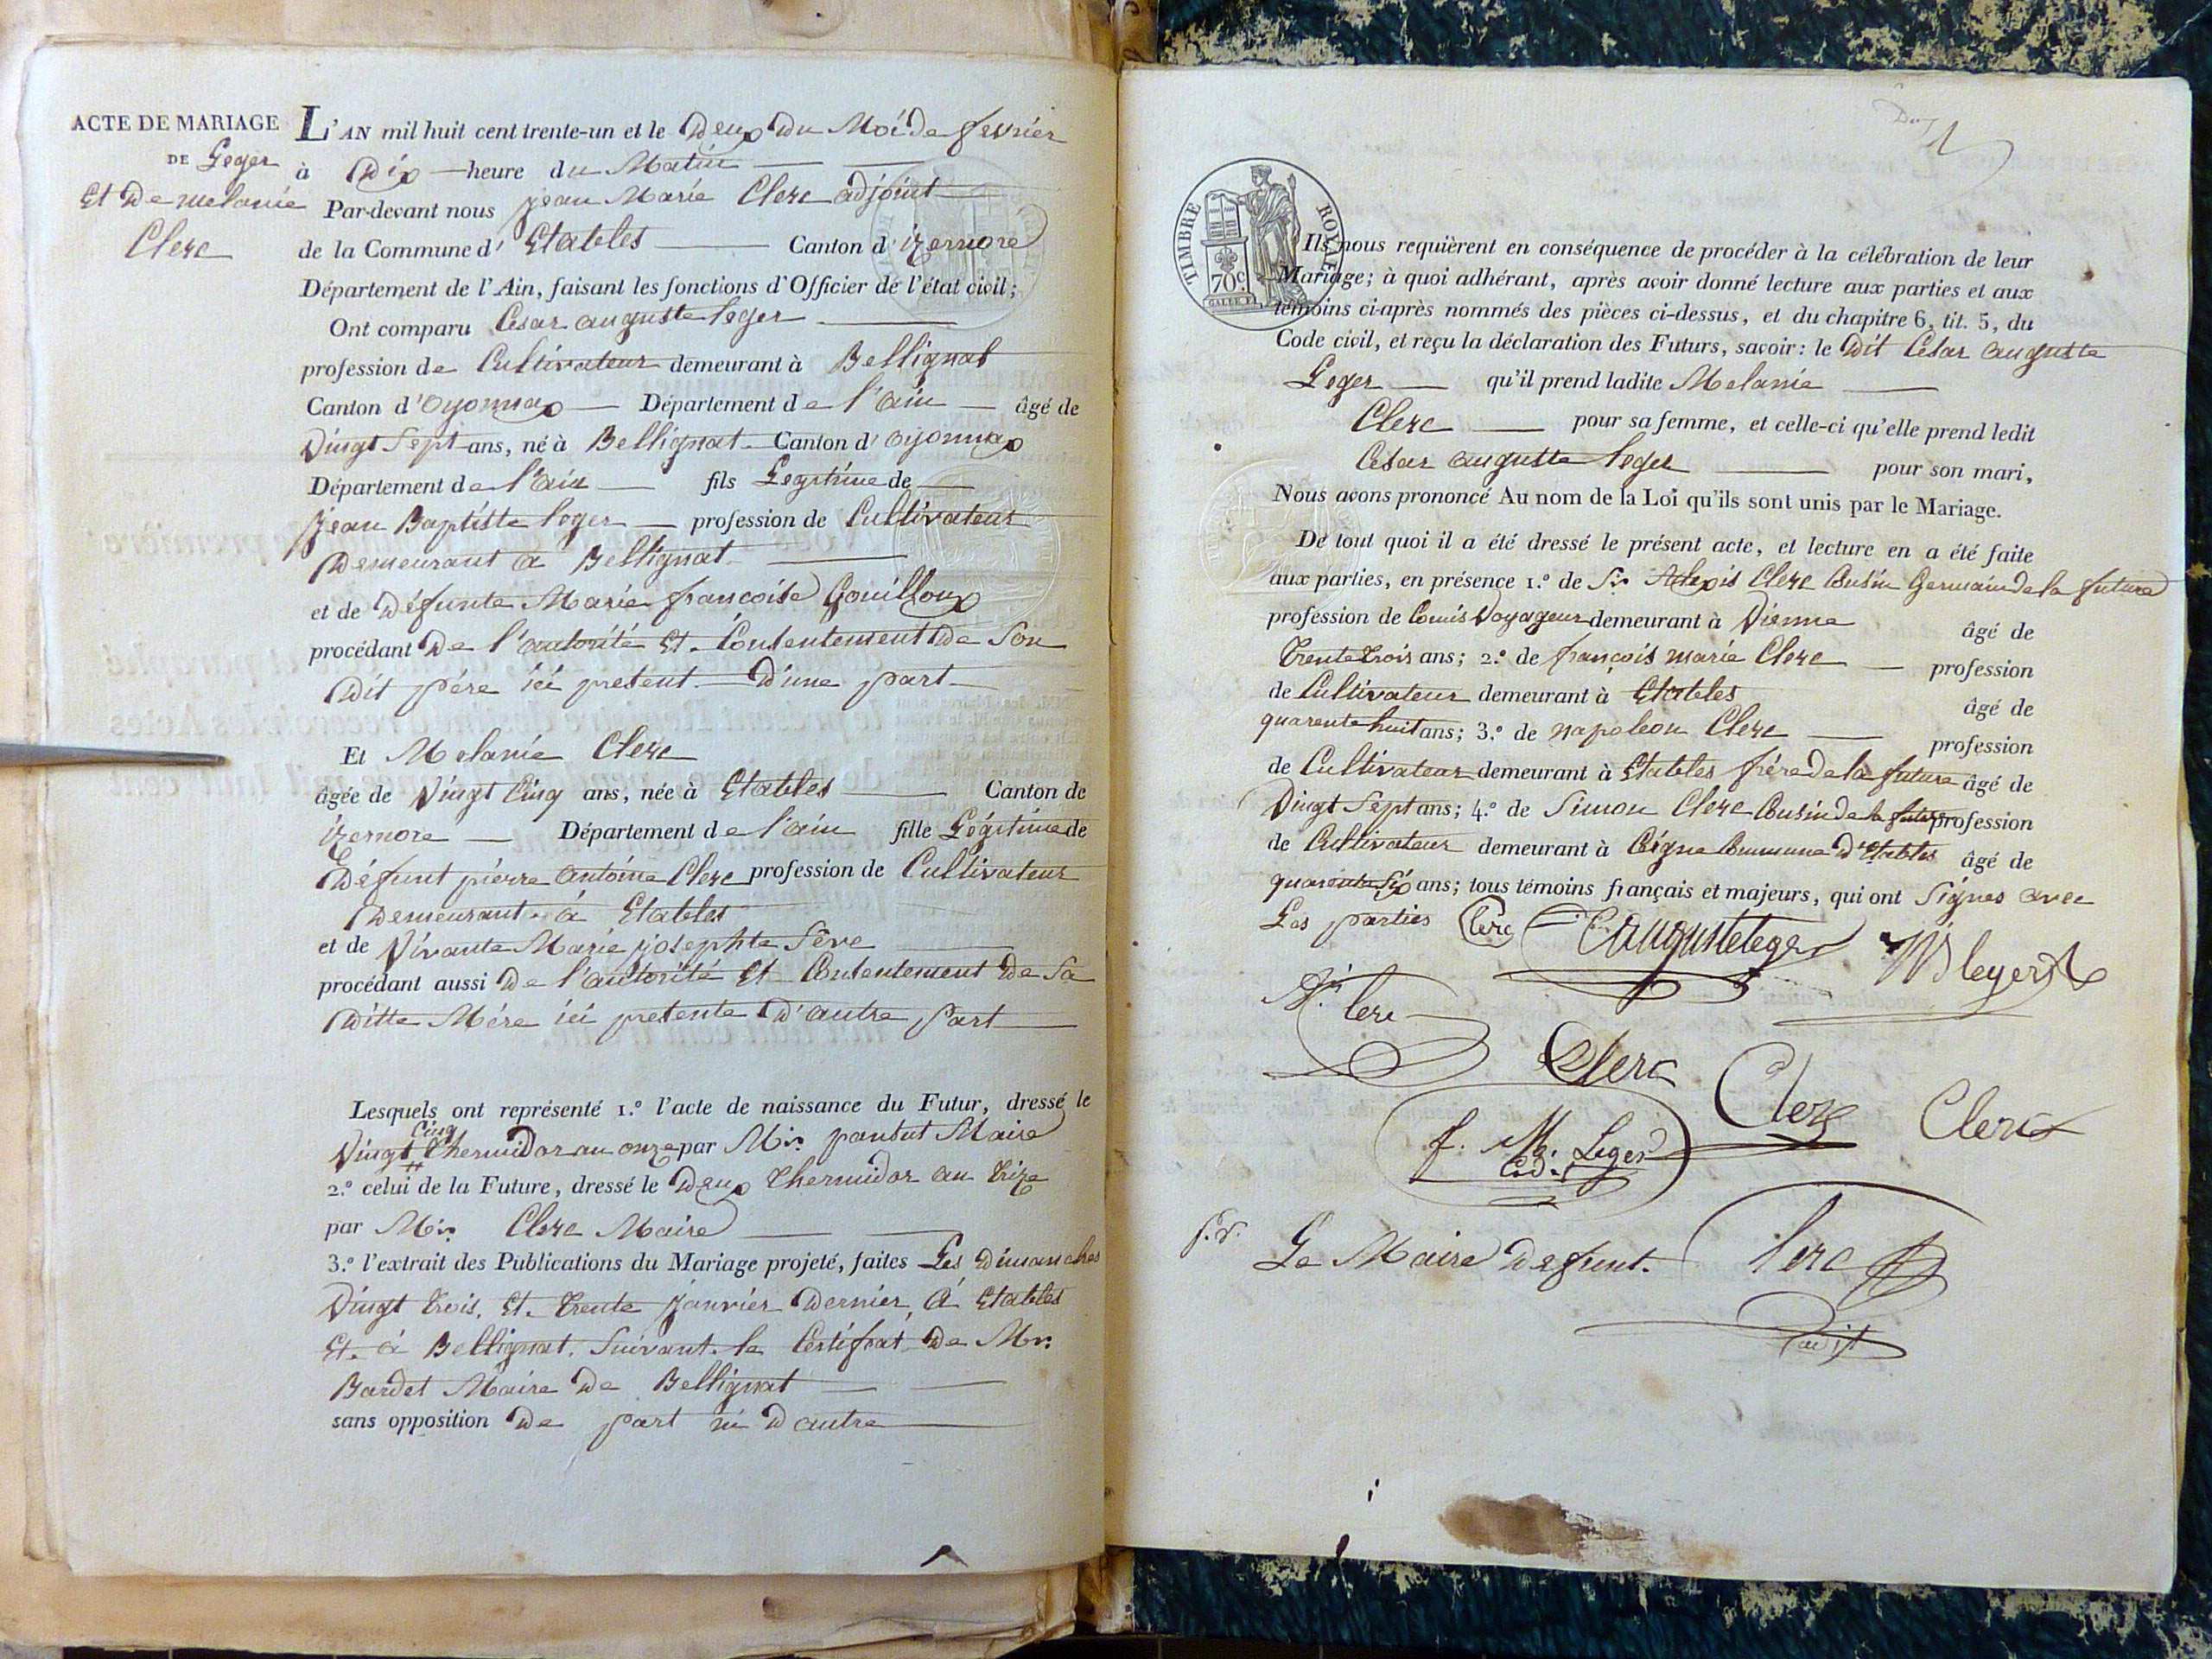 ACTE DE MARIAGE
DE Leger
Et De melanie
Clerc
L'AN mil huit cent trente-un et le Deux Du Moi De fevrier
à Dix heure du Matin
Par-devant nous jean Marie Clerc adjoint
de la Commune d' Etables Canton d' izernore
Département de l'Ain, faisant les fonctions d'Officier de l'état civil;
Ont comparu Cesar auguste leger
profession de Cultivateur demeurant à Bellignat
Canton d' Oyonnax Département de l'ain âgé de
Vingt Sept ans, né à Bellignat Canton d' oyonnax
Département de l'ain fils Legitime de
jean Baptiste leger profession de Cultivateur
Demeurant a Bellignat
et de Défunte Marie françoise Gouilloux
procédant De l'autorité Et Consentement De Son
Dit père ici present D'une part
Et Melanie Clerc
âgée de Vingt Cinq ans, née à Etables Canton de
izernore Département de l'ain fille Légitime de
Défunt pierre antoine Clerc profession de Cultivateur
Demeurant à Etables
et de Vivante Marie josephte Sève
procédant aussi De l'autorité Et Consentement De Sa
Ditte Mére ici presente D'autre Part
Lesquels ont représenté 1.º l'acte de naissance du Futur, dressé le
Cinq
Vingt thermidor an onze par Mr. pantut Maire
2.º celui de la Future, dressé le Deux thermidor an trize
par Mr. Clerc Maire
3.º l'extrait des Publications du Mariage projeté, faites Les Dimanches
Vingt trois, Et trente janvier Dernier, à Etables
Et à Bellignat, Suivant le Certificat De Mr.
Bardet Maire De Bellignat
sans opposition De part ni D'autre
TIMBRE ROYAL
70c
Ils nous requièrent en conséquence de procéder à la célébration de leur
Mariage; à quoi adhérant, après avoir donné lecture aux parties et aux
témoins ci-après nommés des pièces ci-dessus, et du chapitre 6, tit. 5, du
Code civil, et reçu la déclaration des Futurs, savoir: le Dit Cesar auguste
Leger qu'il prend ladite Melanie
Clerc pour sa femme, et celle-ci qu'elle prend ledit
Cesar auguste leger pour son mari,
Nous avons prononcé Au nom de la Loi qu'ils sont unis par le Mariage.
De tout quoi il a été dressé le présent acte, et lecture en a été faite
aux parties, en présence 1.º de Sr. Alexis Clerc Cousin Germain de la future
profession de Comis Voyageur demeurant à Vienne âgé de
trente trois ans; 2.º de françois marie Clerc profession
de Cultivateur demeurant à Etables âgé de
quarente huit ans; 3.º de napoleon Clerc profession
de Cultivateur demeurant à Etables frére de la future âgé de
Vingt Sept ans; 4.º de Simon Clerc Cousin de la future profession
de Cultivateur demeurant à Ceigne Commune D'Etables âgé de
quarente Six ans; tous témoins français et majeurs, qui ont Signes avec
Les parties Clerc C auguste leger JB leger
Clerc
Clerc Clerc Clerc
f. M. Leger
Cadet
Le Maire Defunt. Clerc
adjt